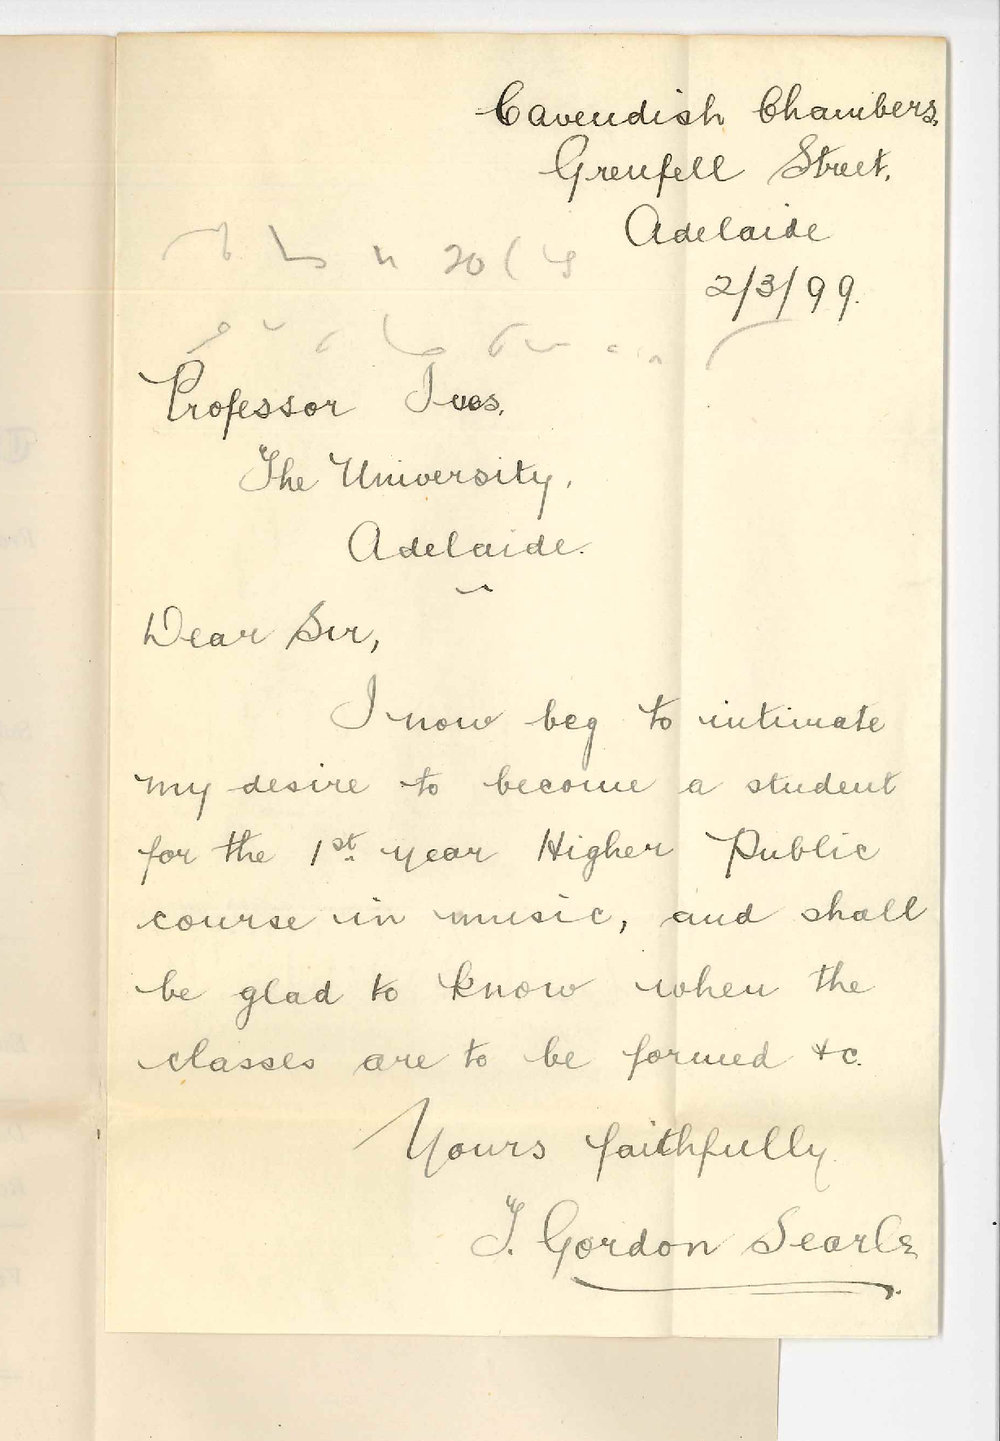 Cavendish Chambers,
Grenfell Street,
Adelaide
2/3/99.
20
Professor Ives,
The University,
Adelaide.
Dear Sir,
I now beg to intimate
my desire to become a student
for the 1st year Higher Public
course in music, and shall
be glad to know when the
classes are to be formed &c.
Yours faithfully
T. Gordon Searle